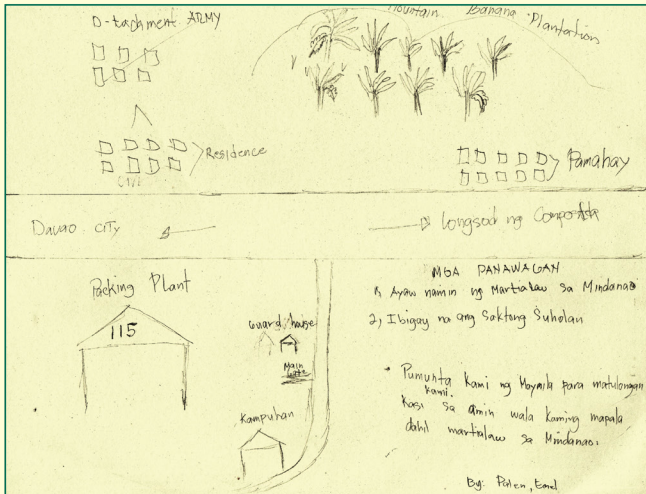 D-tachment ARMY
Mountain Banana Plantation
Residence
Pamahay
Davao CITY
Longsod ng
Packing Plant
115
Guard house
Main
Gate
Kampuhan
MGA PANAWAGAN
1, Ayaw namin ng Martialaw sa Mindanao
2, Ibigay na ang Saktong Suholan
• Pumunta Kami ng Maynila para matulongan
kami.
Kasi sa amin wala kaming mapala
dahil martialaw sa Mindanao.
By: